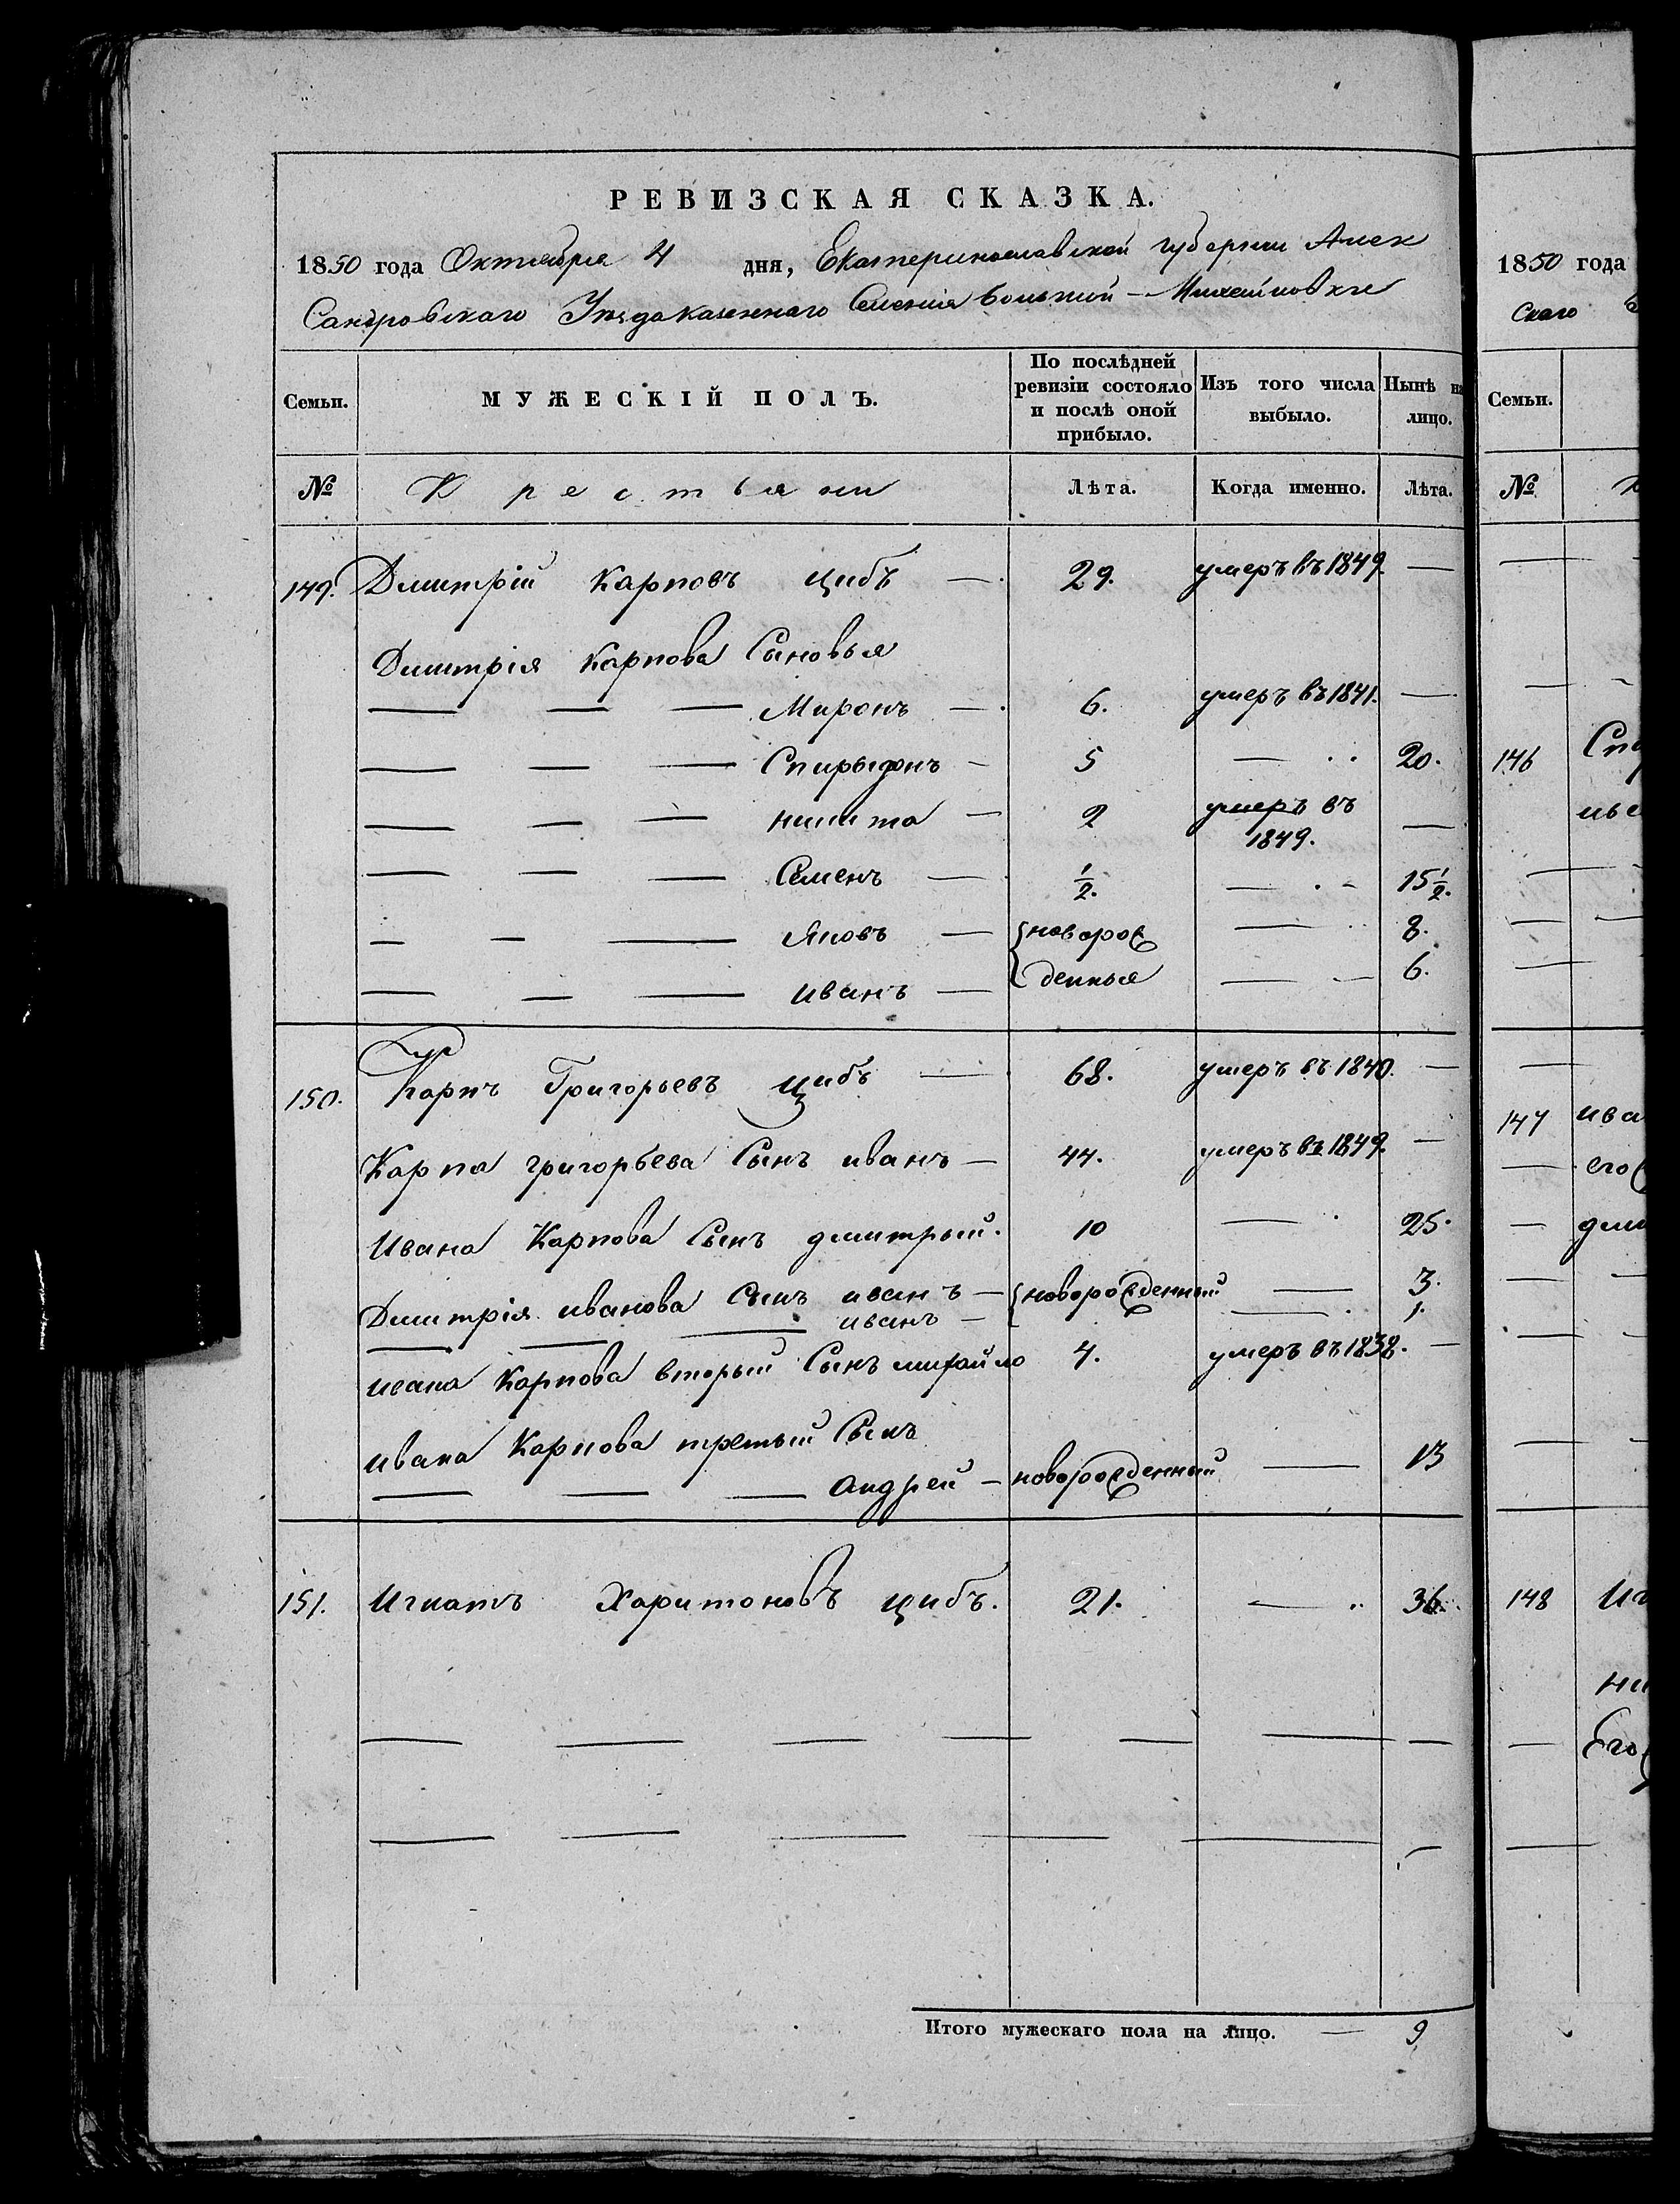 РЕВИЗСКАЯ СКАЗКА.
1850 года Октября 4 дня, Екатеринославской губернии Алек
Сандровскаго Уезда казеннаго Селения Большой-Михайловки
Семьи.
МУЖЕСКІЙ ПОЛЪ.
По послѣдней ревизіи состояло и послѣ оной прибыло.
Изъ того числа выбыло.
Нынѣ на лицо.
№ Крестьяни Лѣта. Когда именно. Лѣта.
149. Дмитрій Карповъ цибъ — 29. умеръ въ 1849. —
Дмитрія Карпова Сыновья
— — — Миронъ — 6. умеръ въ 1841. —
— — — Спирыдонъ — 5 — 20.
— — — никита — 2 умеръ въ 1849. —
— — — Семенъ — 1/2. — 15 1/2.
— — — Яковъ — новорож — 8.
— — — иванъ — денныя — 6.
150. Карпъ Григорьевъ цибъ — 68. умеръ въ 1840. —
Карпа григорьева Сынъ иванъ — 44. умеръ въ 1849. —
Ивана Карпова Сынъ дмитрый. 10 — 25.
Дмитрія иванова Сынъ иванъ — новорожденный — 3.
— — — иванъ — — 1.
ивана Карпова вторый Сынъ михайло 4. умеръ въ 1838. —
ивана Карпова третьый Сынъ
— — — андрей — новорожденный — 13
151. Игнатъ Харитоновъ цибъ. 21. — 36.
Итого мужескаго пола на лицо. — 9
1850 года
Скаго
Семьи.
№
146 Спи
147 ива
его
дми
148 Иг
ни
Его